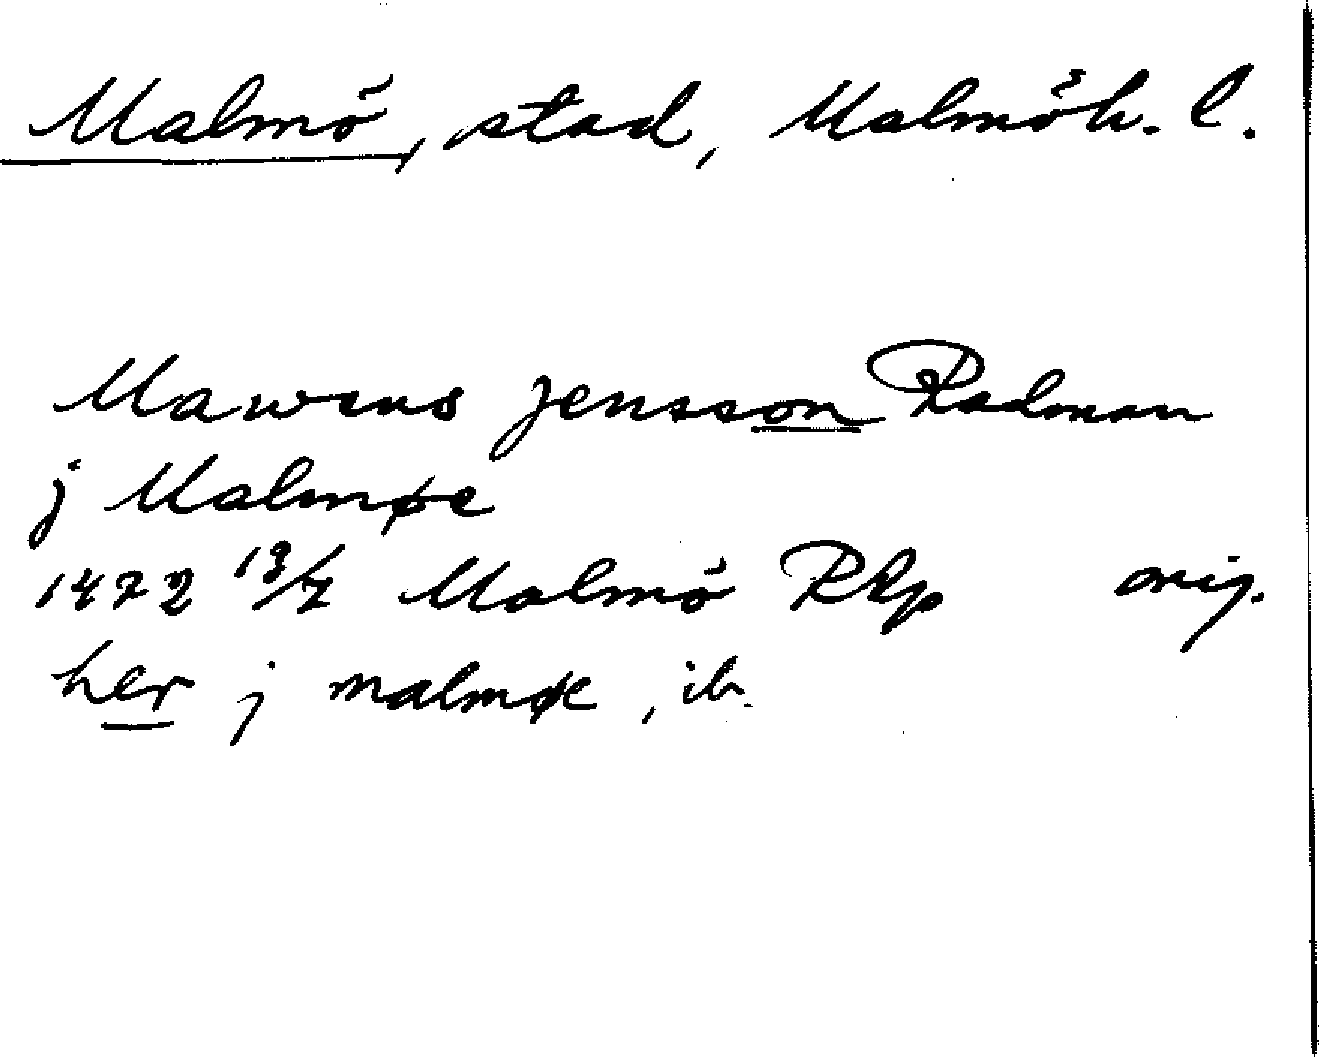 Malmö, stad, Malmöh. l.
Mawens Jensson Radman
j Malmøe
1472 13/7 Malmö RAp orig.
her j malmøe, ib.